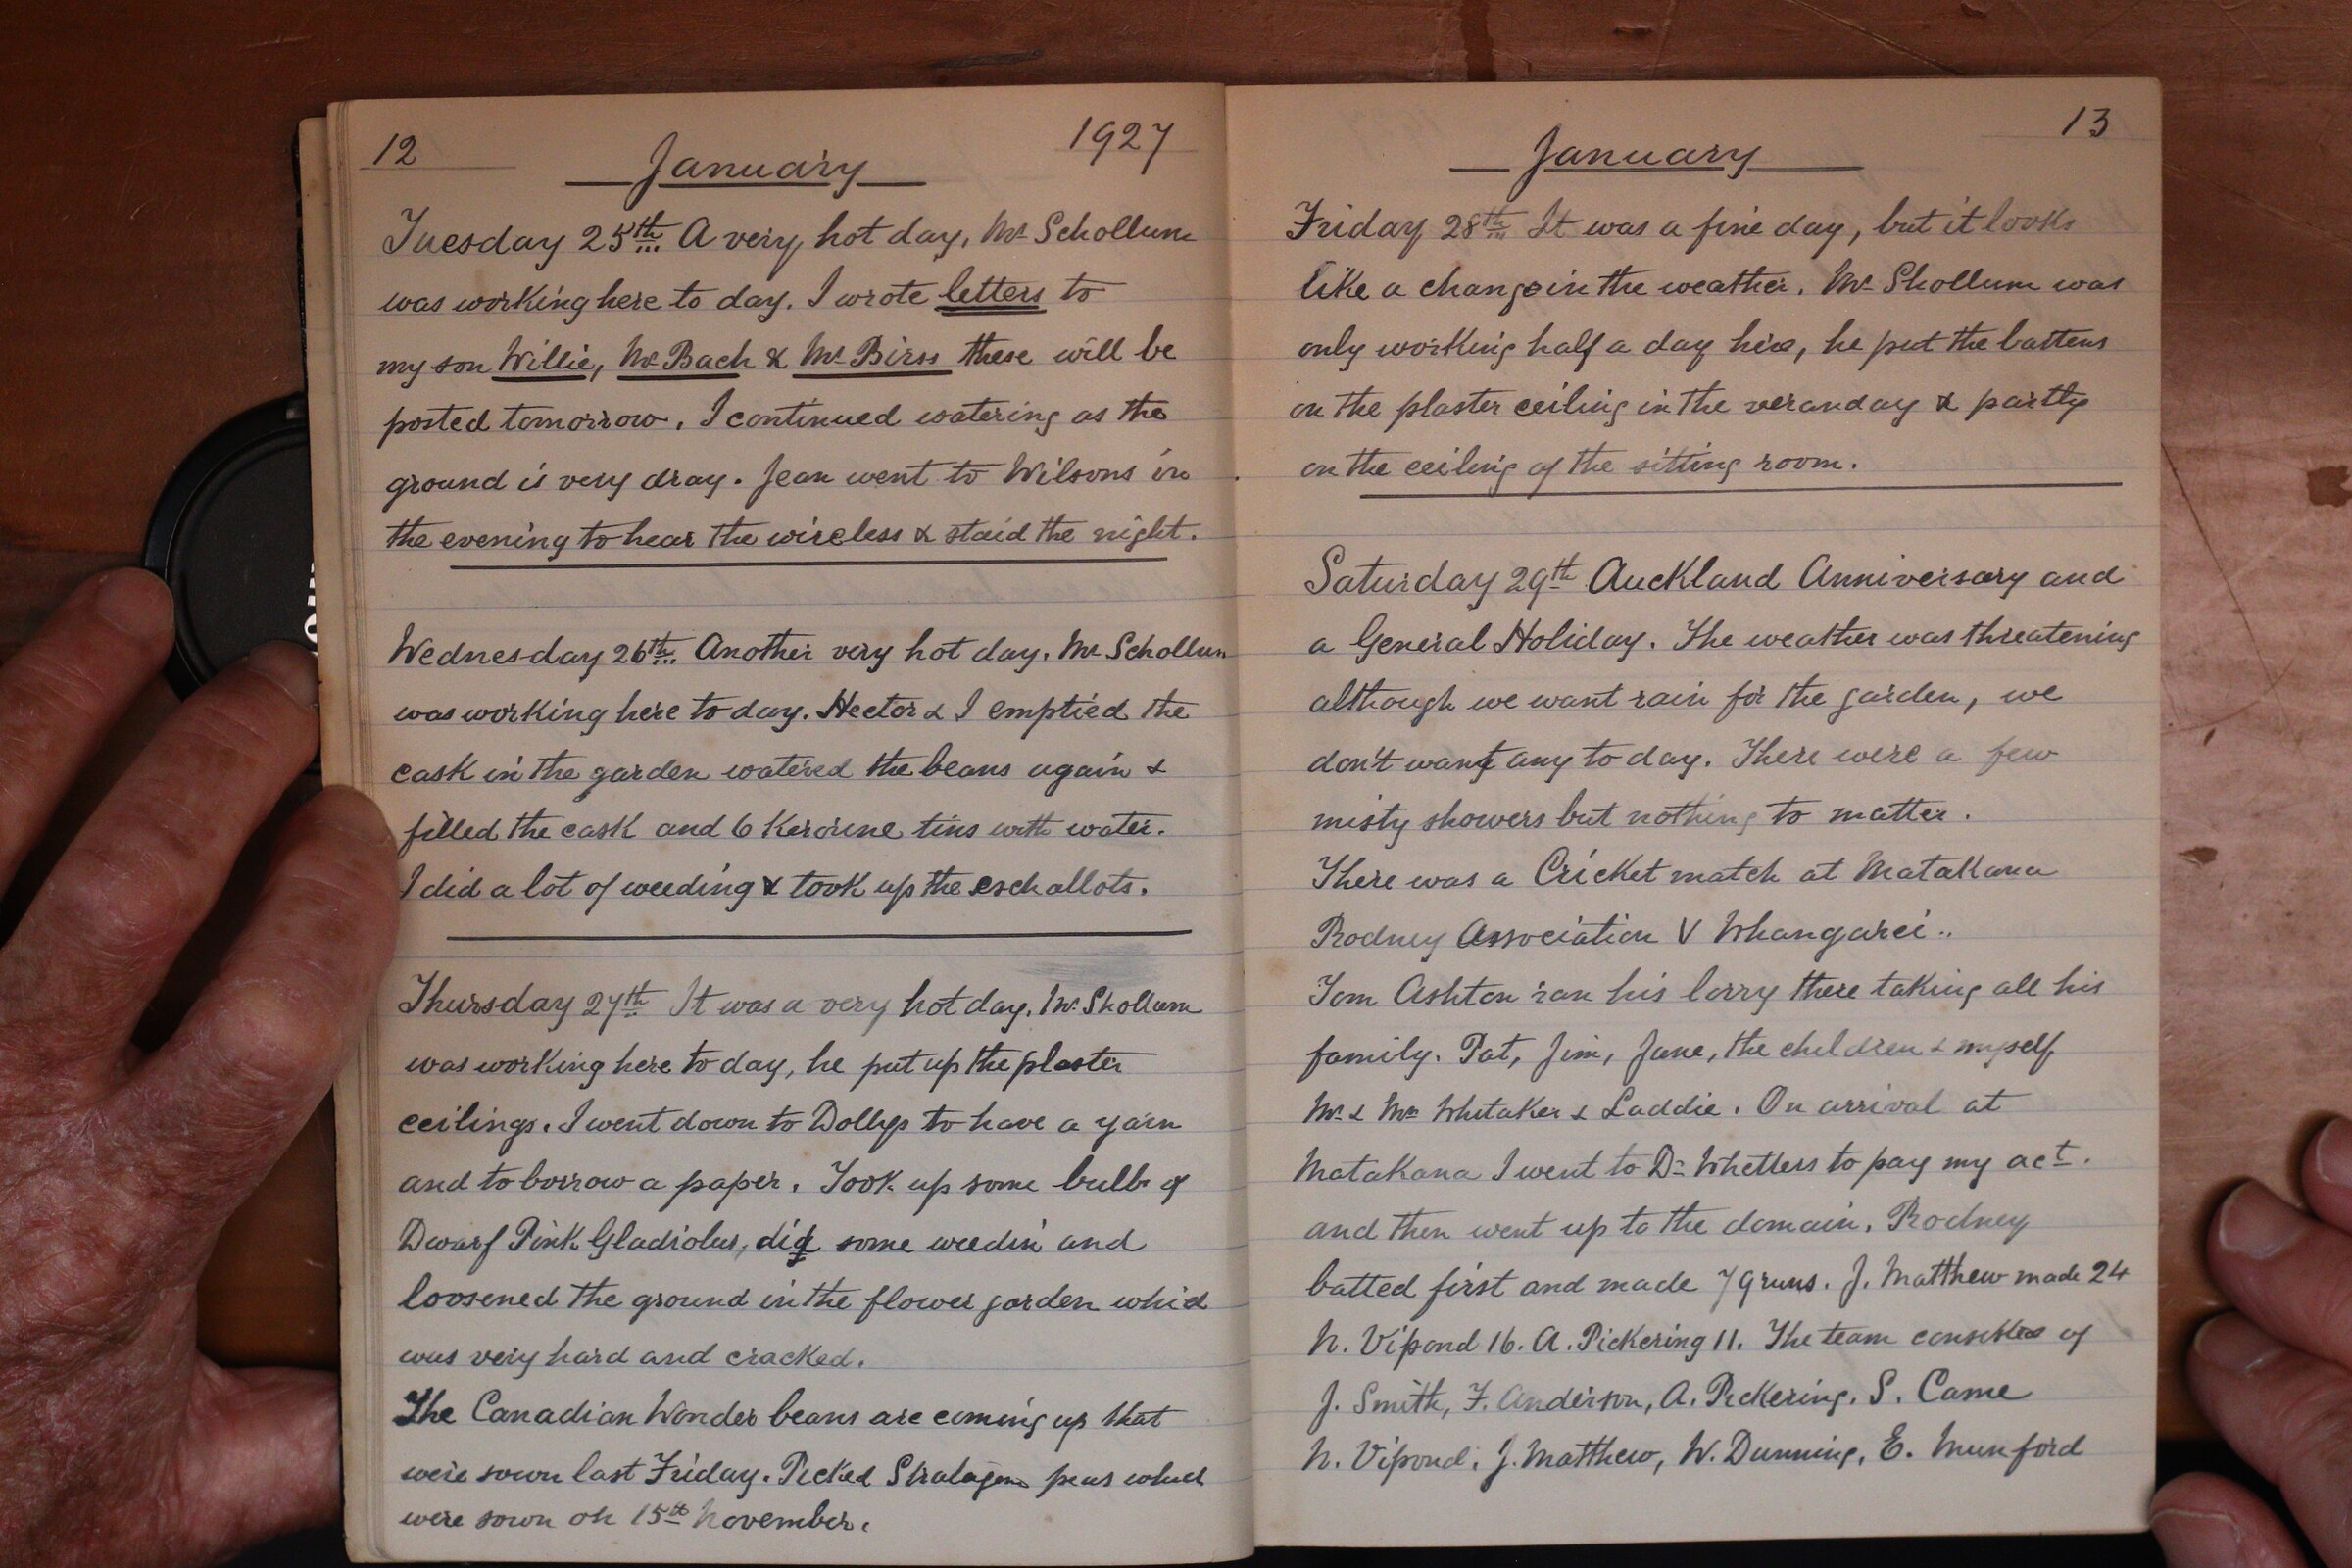 12 January 1927
Tuesday 25th A very hot day, Mr Schollum
was working here to day. I wrote letters to
my son Willie, Mr Bach & Mr Birss these will be
posted tomorrow. I continued watering as the
ground is very dray. Jean went to Wilsons in
the evening to hear the wireless & staid the night.
Wednesday 26th Another very hot day. Mr Schollum
was working here to day. Hector & I emptied the
cask in the garden watered the beans again &
filled the cask and 6 Kerosine tins with water.
I did a lot of weeding & took up the eschallots.
Thursday 27th It was a very hot day. Mr Shollum
was working here to day, he put up the plaster
ceilings. I went down to Dollys to have a yarn
and to borrow a paper. Took up some bulbs of
Dwarf Pink Gladiolus, did some weedin and
loosened the ground in the flower garden which
was very hard and cracked.
The Canadian Wonder beans are coming up that
were sown last Friday. Picked Stratagem peas which
were sown on 15th November.
13
January
Friday 28th It was a fine day, but it looks
like a change in the weather. Mr Shollum was
only working half a day here, he put the battens
on the plaster ceiling in the veranday & partly
on the ceiling of the sitting room.
Saturday 29th Auckland Anniversary and
a General Holiday. The weather was threatening
although we want rain for the garden, we
don't want any to day. There were a few
misty showers but nothing to matter.
There was a Cricket match at Matakana
Rodney Association V Whangarei..
Tom Ashton ran his lorry there taking all his
family. Pat, Jim, Jane, the children & myself
Mr & Mrs Whitaker & Laddie. On arrival at
Matakana I went to Dr Whetters to pay my act.
and then went up to the domain. Rodney
batted first and made 79 runs. J. Matthew made 24
N. Vipond 16. A. Pickering 11. The team consisted of
J. Smith, F. Anderson, A. Pickering. S. Came
N. Vipond. J. Matthew, W. Dunning, E. Munford